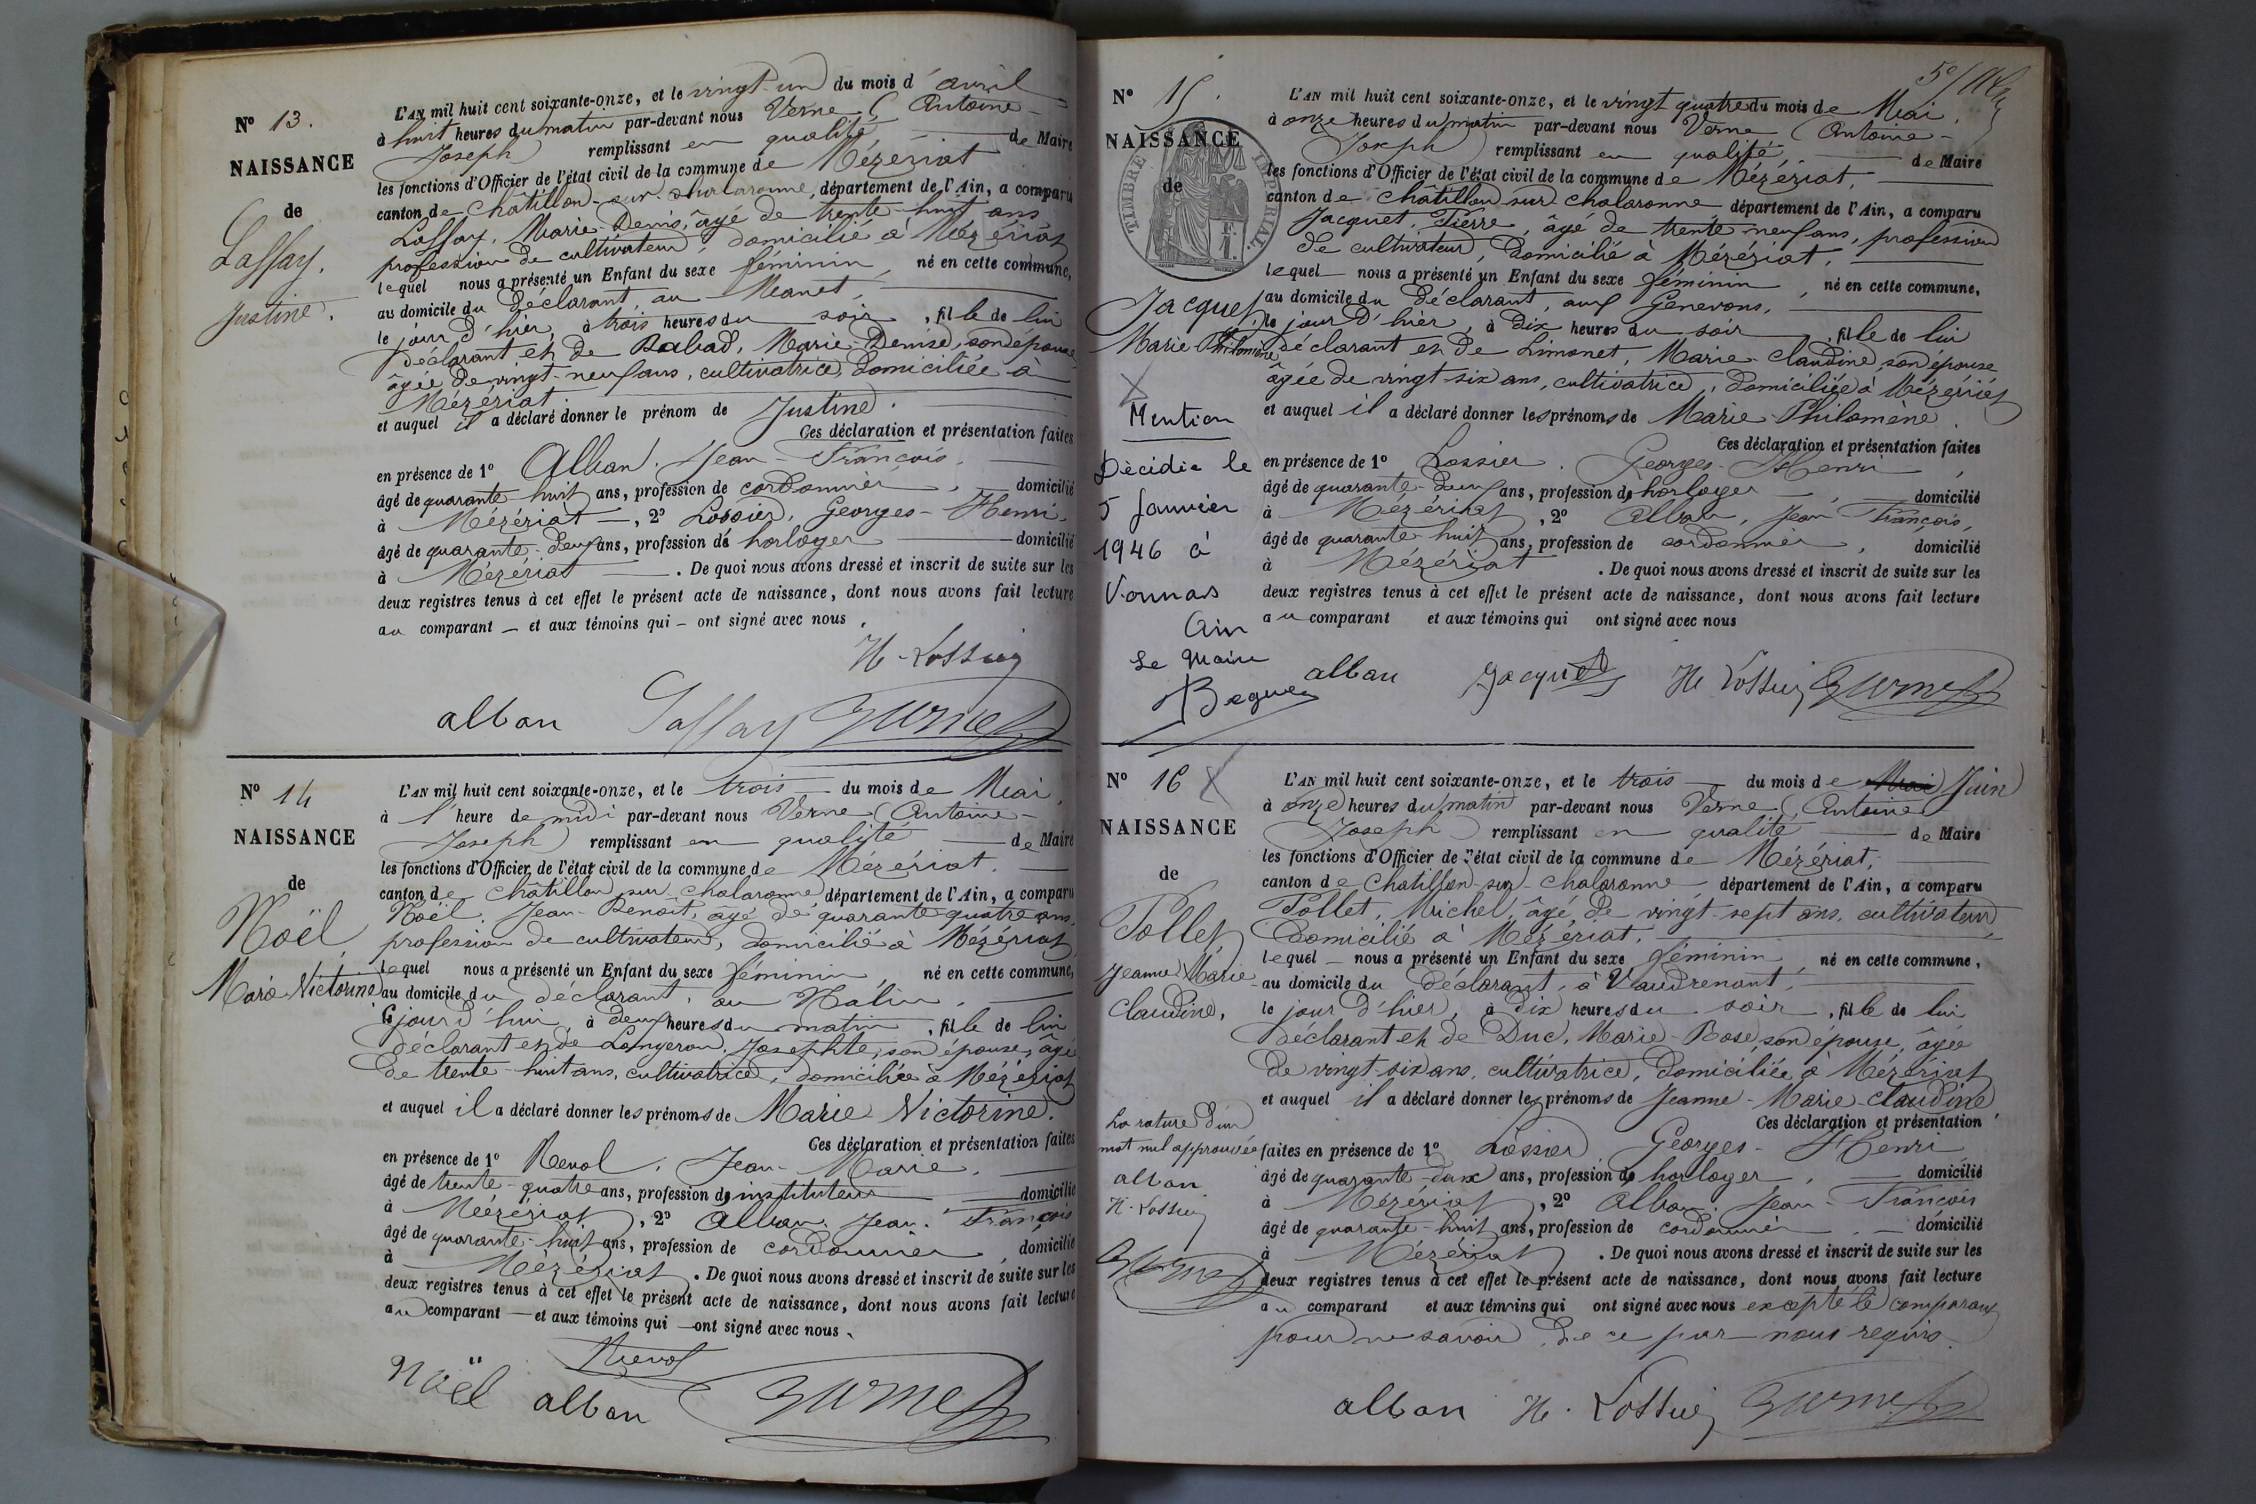 N° 13.
NAISSANCE
de
Laffay.
Justine.
L'AN mil huit cent soixante-onze, et le vingt-un du mois d'avril
à huit heures du matin par-devant nous Verne (Antoine-
Joseph) remplissant en qualité de Maire
les fonctions d'Officier de l'état civil de la commune de Mézériat
canton de Châtillon-sur-Chalaronne, département de l'Ain, a comparu
Laffay, Marie-Denis, âgé de trente-huit ans
profession de cultivateur, domicilié à Mézériat
lequel nous a présenté un Enfant du sexe féminin, né en cette commune,
au domicile du déclarant, au
le jour d'hier, à trois heures du soir, fille de lui
déclarant et de Rabad, Marie-Denise, son épouse
âgée de vingt-neuf ans, cultivatrice, domiciliée à
Mézériat.
et auquel il a déclaré donner le prénom de Justine.
Ces déclaration et présentation faites
en présence de 1° Alban. Jean-François.
âgé de quarante-huit ans, profession de cordonnier, domicilié
à Mézériat, 2° Lossier, Georges-Henri
âgé de quarante-deux ans, profession de horloger domicilié
à Mézériat. De quoi nous avons dressé et inscrit de suite sur les
deux registres tenus à cet effet le présent acte de naissance, dont nous avons fait lecture
au comparant et aux témoins qui ont signé avec nous.
H. Lossier
alban Laffay Verne
N° 14
NAISSANCE
de
Noël
Marie Victorine
L'AN mil huit cent soixante-onze, et le trois du mois de Mai,
à l'heure de midi par-devant nous Verne (Antoine-
Joseph) remplissant en qualité de Maire
les fonctions d'Officier de l'état civil de la commune de Mézériat.
canton de Châtillon sur Chalaronne département de l'Ain, a comparu
Noël. Jean-Benoît, âgé de quarante quatre ans,
profession de cultivateur, domicilié à Mézériat
lequel nous a présenté un Enfant du sexe féminin, né en cette commune,
au domicile du déclarant, au
le jour d'hui, à deux heures du matin, fille de lui
déclarant et de Longeron, Josephte, son épouse, âgée
de trente-huit ans, cultivatrice, domiciliée à Mézériat
et auquel il a déclaré donner les prénoms de Marie Victorine.
Ces déclaration et présentation faites
en présence de 1° Revol, Jean-Marie,
âgé de trente-quatre ans, profession de instituteur domicilié
à Mézériat, 2° Alban. Jean-François
âgé de quarante-huit ans, profession de cordonnier domicilié
à Mézériat. De quoi nous avons dressé et inscrit de suite sur les
deux registres tenus à cet effet le présent acte de naissance, dont nous avons fait lecture
au comparant et aux témoins qui ont signé avec nous.
Revol
Noël alban Verne
N° 15.
NAISSANCE
de
TIMBRE IMPÉRIAL
Jacquet
Marie Philomène
Mention
Décédée le
5 Janvier
1946 à
Vonnas
Ain
Le Maire
L'AN mil huit cent soixante-onze, et le vingt quatre du mois de Mai.
à onze heures du matin par-devant nous Verne (Antoine-
Joseph) remplissant en qualité, de Maire
les fonctions d'Officier de l'état civil de la commune de Mézériat,
canton de Châtillon sur Chalaronne département de l'Ain, a comparu
Jacquet, Pierre, âgé de trente-neuf ans, profession
de cultivateur, domicilié à Mézériat,
lequel nous a présenté un Enfant du sexe féminin, né en cette commune,
au domicile du déclarant, aux Genevons,
le jour d'hier, à dix heures du soir, fille de lui
déclarant et de Limonet, Marie-Claudine, son épouse
âgée de vingt-six ans, cultivatrice, domiciliée à Mézériat
et auquel il a déclaré donner les prénoms de Marie-Philomène.
Ces déclaration et présentation faites
en présence de 1° Lossier. Georges-Henri,
âgé de quarante-deux ans, profession de horloger, domicilié
à Mézériat, 2° Alban, Jean-François,
âgé de quarante huit ans, profession de cordonnier, domicilié
à Mézériat. De quoi nous avons dressé et inscrit de suite sur les
deux registres tenus à cet effet le présent acte de naissance, dont nous avons fait lecture
au comparant et aux témoins qui ont signé avec nous
alban Jacquet H. Lossier Verne
N° 16
NAISSANCE
de
Pollet,
Jeanne Marie
Claudine,
La rature d'un
mot nul approuvée
alban
H. Lossier
Verne
L'AN mil huit cent soixante-onze, et le trois du mois de Mai Juin
à onze heures du matin par-devant nous Verne (Antoine
Joseph) remplissant en qualité de Maire
les fonctions d'Officier de l'état civil de la commune de Mézériat,
canton de Chatillon-sur-Chalaronne département de l'Ain, a comparu
Pollet, Michel, âgé de vingt-sept ans, cultivateur,
domicilié à Mézériat.
lequel nous a présenté un Enfant du sexe féminin, né en cette commune,
au domicile du déclarant, à Vaudrenant,
le jour d'hier, à dix heures du soir, fille de lui
déclarant et de Duc, Marie-Rose, son épouse, âgée
de vingt-six ans, cultivatrice, domiciliée à Mézériat
et auquel il a déclaré donner les prénoms de Jeanne-Marie-Claudine
Ces déclaration et présentation
faites en présence de 1° Lossier Georges-Henri
âgé de quarante-deux ans, profession de horloger, domicilié
à Mézériat, 2° Alban. Jean-François
âgé de quarante-huit ans, profession de cordonnier, domicilié
à Mézériat. De quoi nous avons dressé et inscrit de suite sur les
deux registres tenus à cet effet le présent acte de naissance, dont nous avons fait lecture
au comparant et aux témoins qui ont signé avec nous excepté le comparant
pour ne savoir, de ce par nous requis.
alban H. Lossier Verne